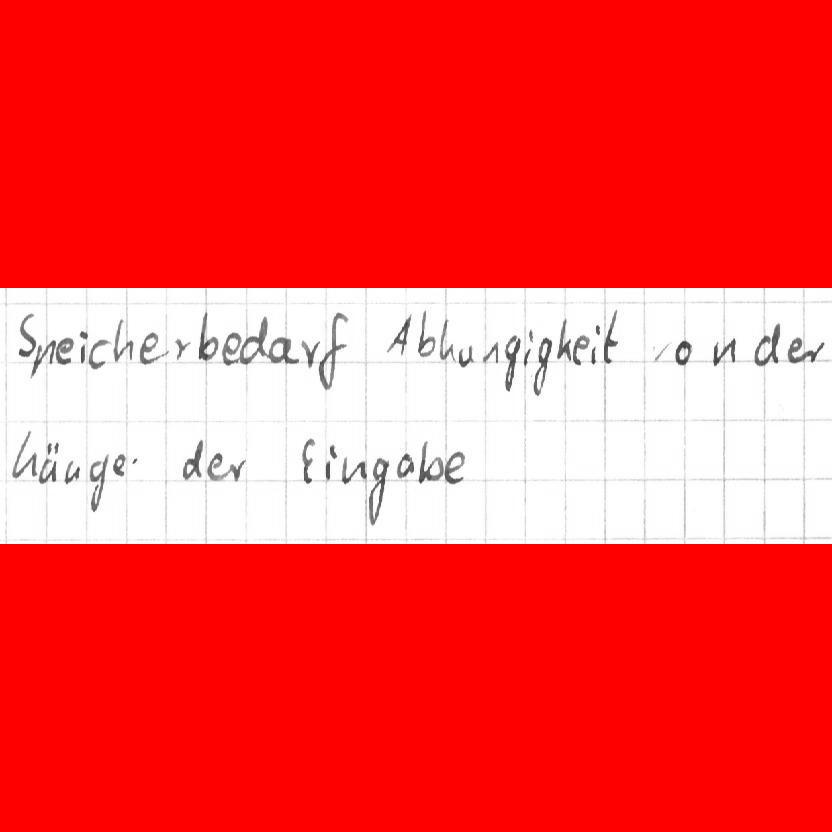 Speicherbedarf Abhungigkeit von der
Länge der Eingabe